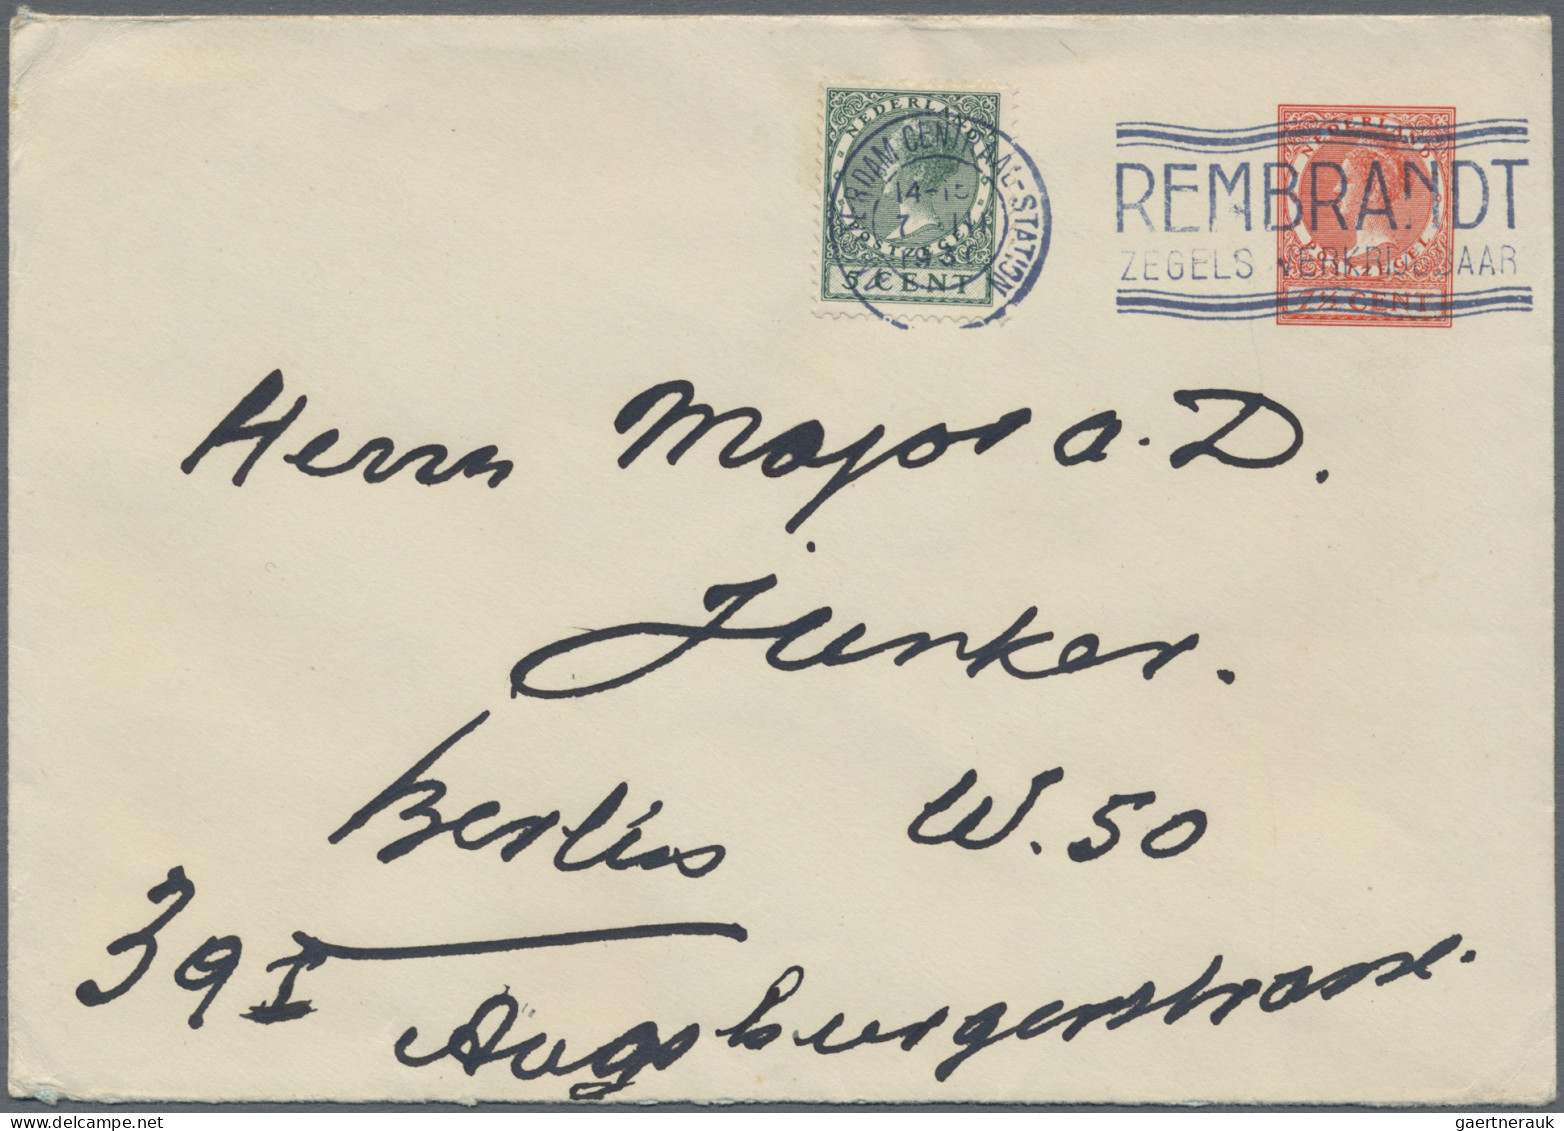 NEDERLAND
POSTZEGEL
5 CENT
CENTRAAL-STATION
1937
REMBRANDT
ZEGELS VERKRIJGBAAR
NEDERLAND
7½ CENT
Herrn Major a. D.
Junker.
Berlin W. 50
39 I
Augsburgerstrasse.
gaertnerauk